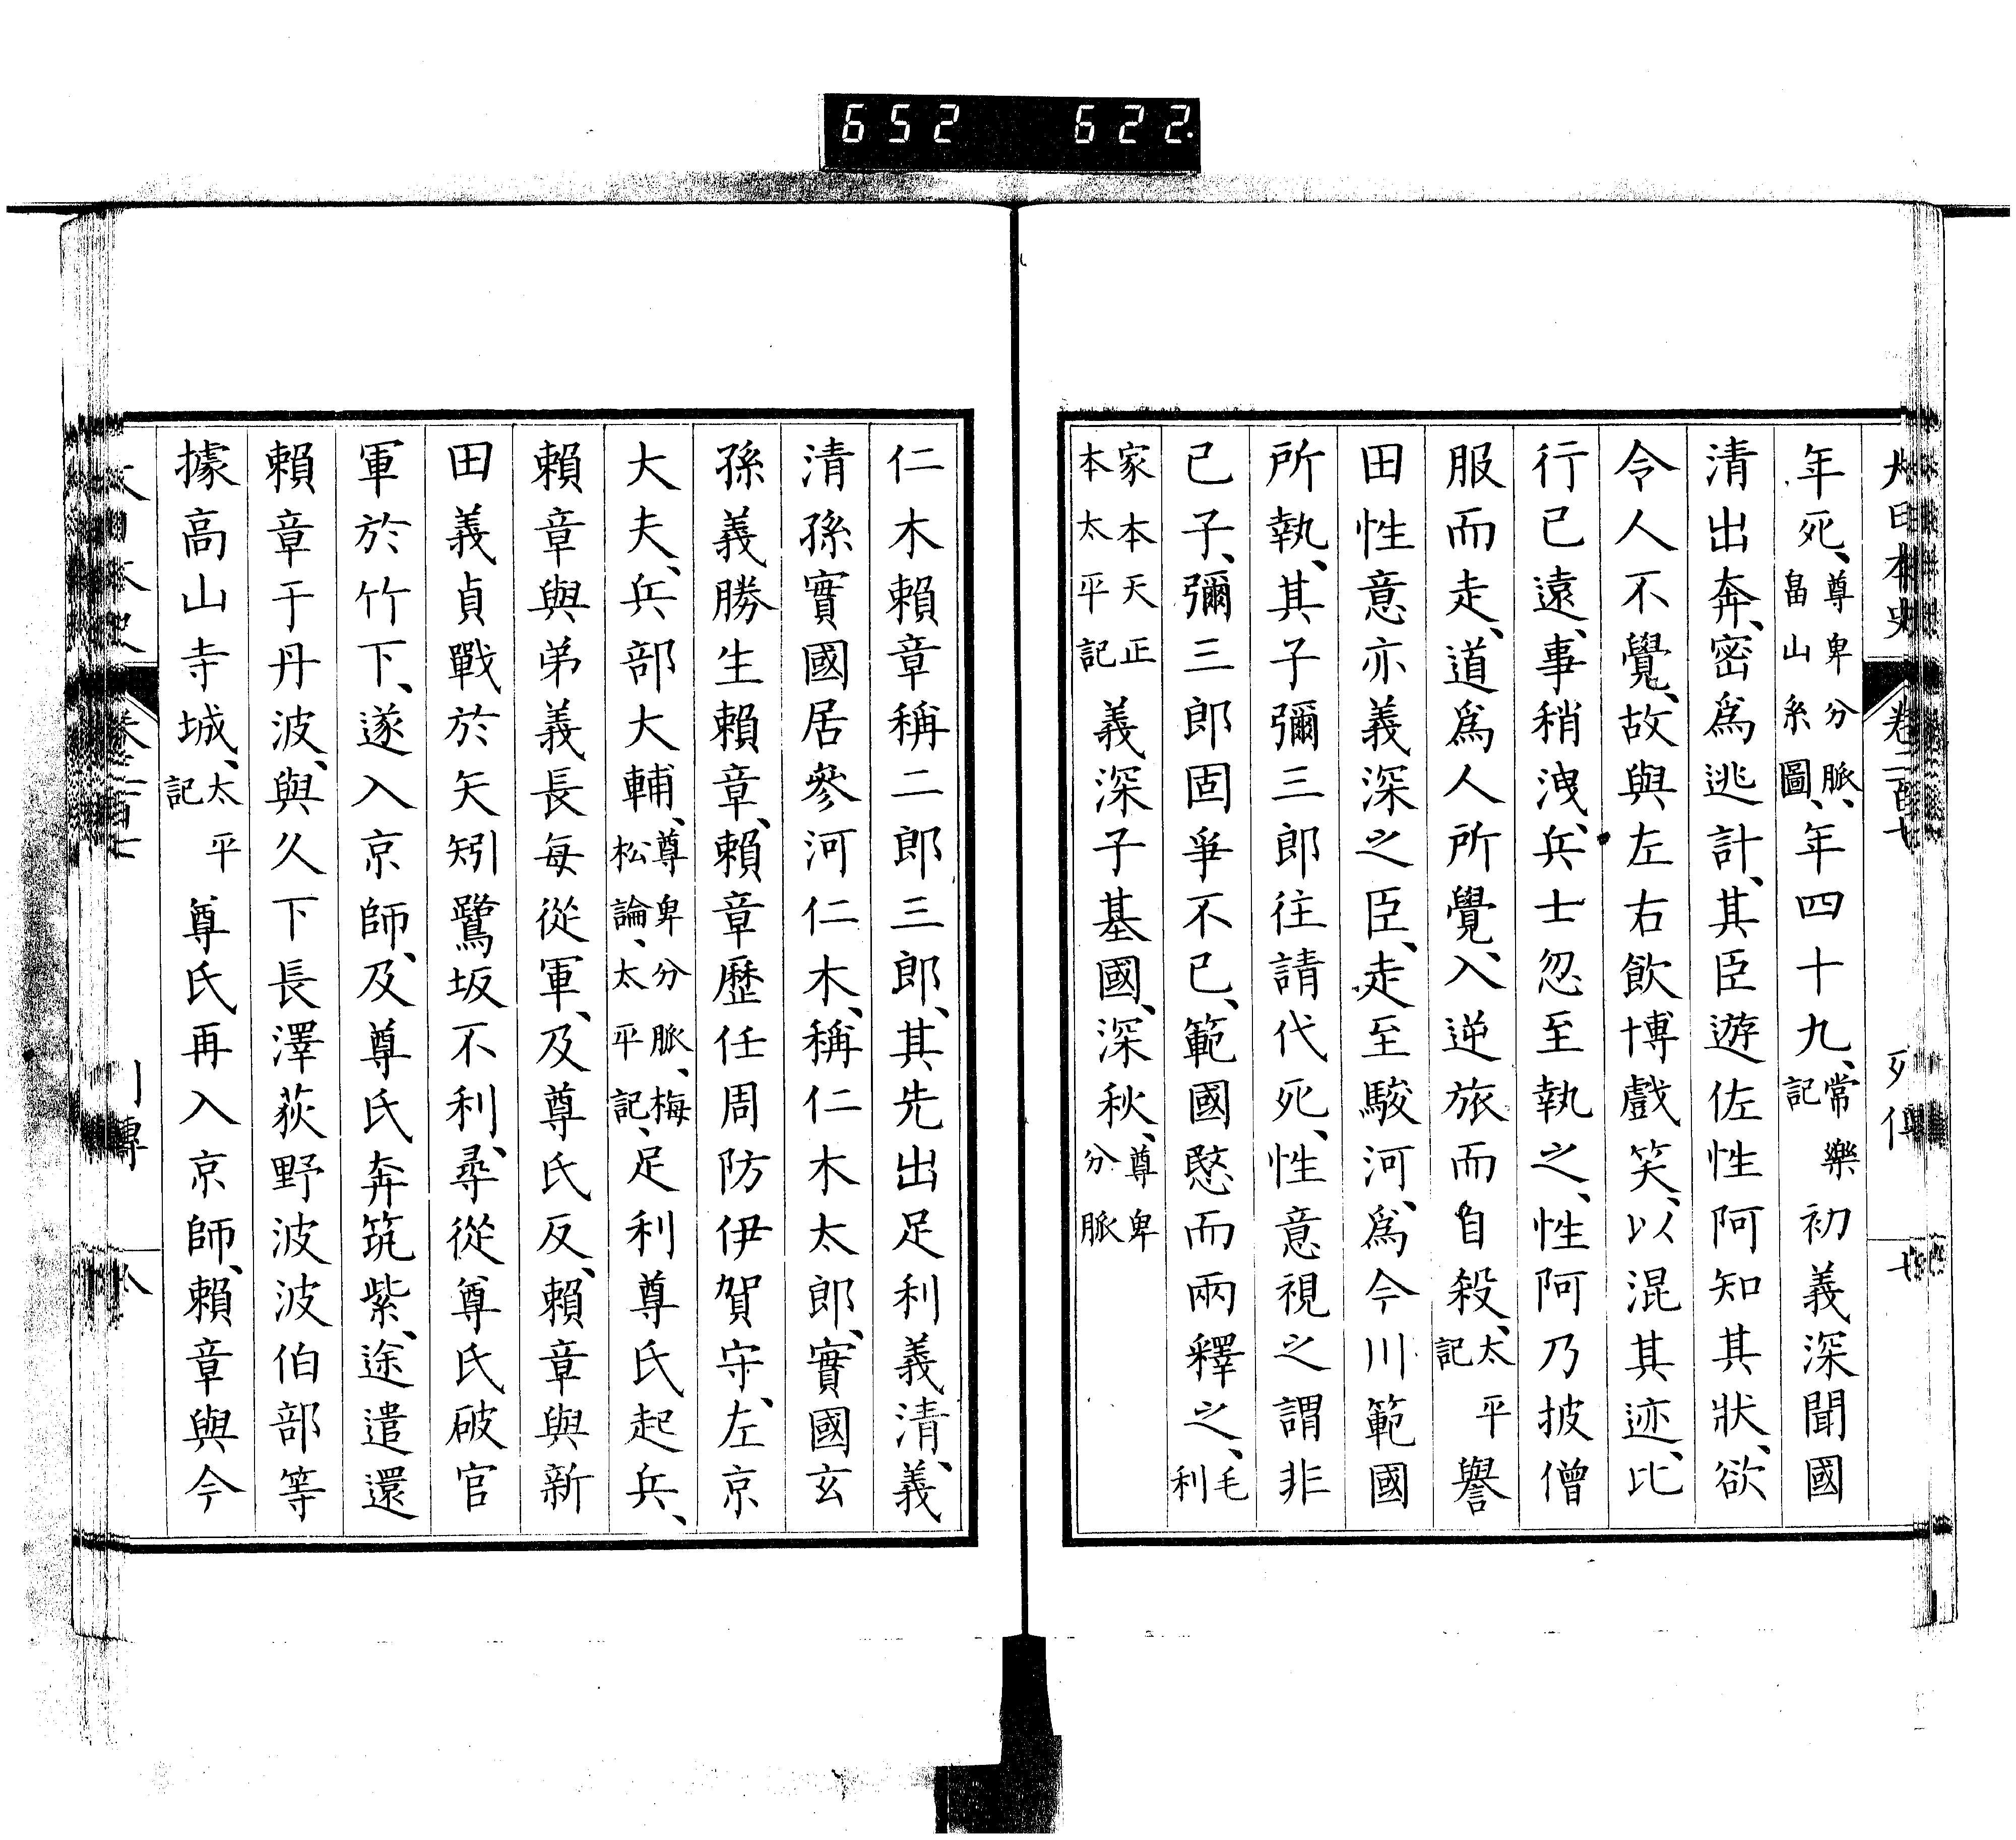 652 622
大日本史 卷二百七 列傳 七
年死、尊卑分脈、畠山系圖、年四十九、常樂記初義深聞國
清出奔、密爲逃計、其臣遊佐性阿知其狀、欲
令人不覺、故與左右飲博戲笑、以混其迹、比
行已遠、事稍洩、兵士忽至執之、性阿乃披僧
服而走、道爲人所覺、入逆旅而自殺、太平記譽
田性意亦義深之臣、走至駿河、爲今川範國
所執、其子彌三郎往請代死、性意視之謂非
己子、彌三郎固爭不已、範國愍而兩釋之、毛利
家本天正本太平記義深子基國、深秋、尊卑分脈
仁木賴章稱二郎三郎、其先出足利義清、義
清孫實國居參河仁木、稱仁木太郎、實國玄
孫義勝生賴章、賴章歷任周防伊賀守、左京
大夫、兵部大輔、尊卑分脈、梅松論、太平記、足利尊氏起兵、
賴章與弟義長每從軍、及尊氏反、賴章與新
田義貞戰於矢矧鷺坂不利、尋從尊氏破官
軍於竹下、遂入京師、及尊氏奔筑紫、途遣還
賴章于丹波、與久下長澤荻野波波伯部等
據高山寺城、太平記尊氏再入京師、賴章與今
大日本史 卷二百七 列傳 八